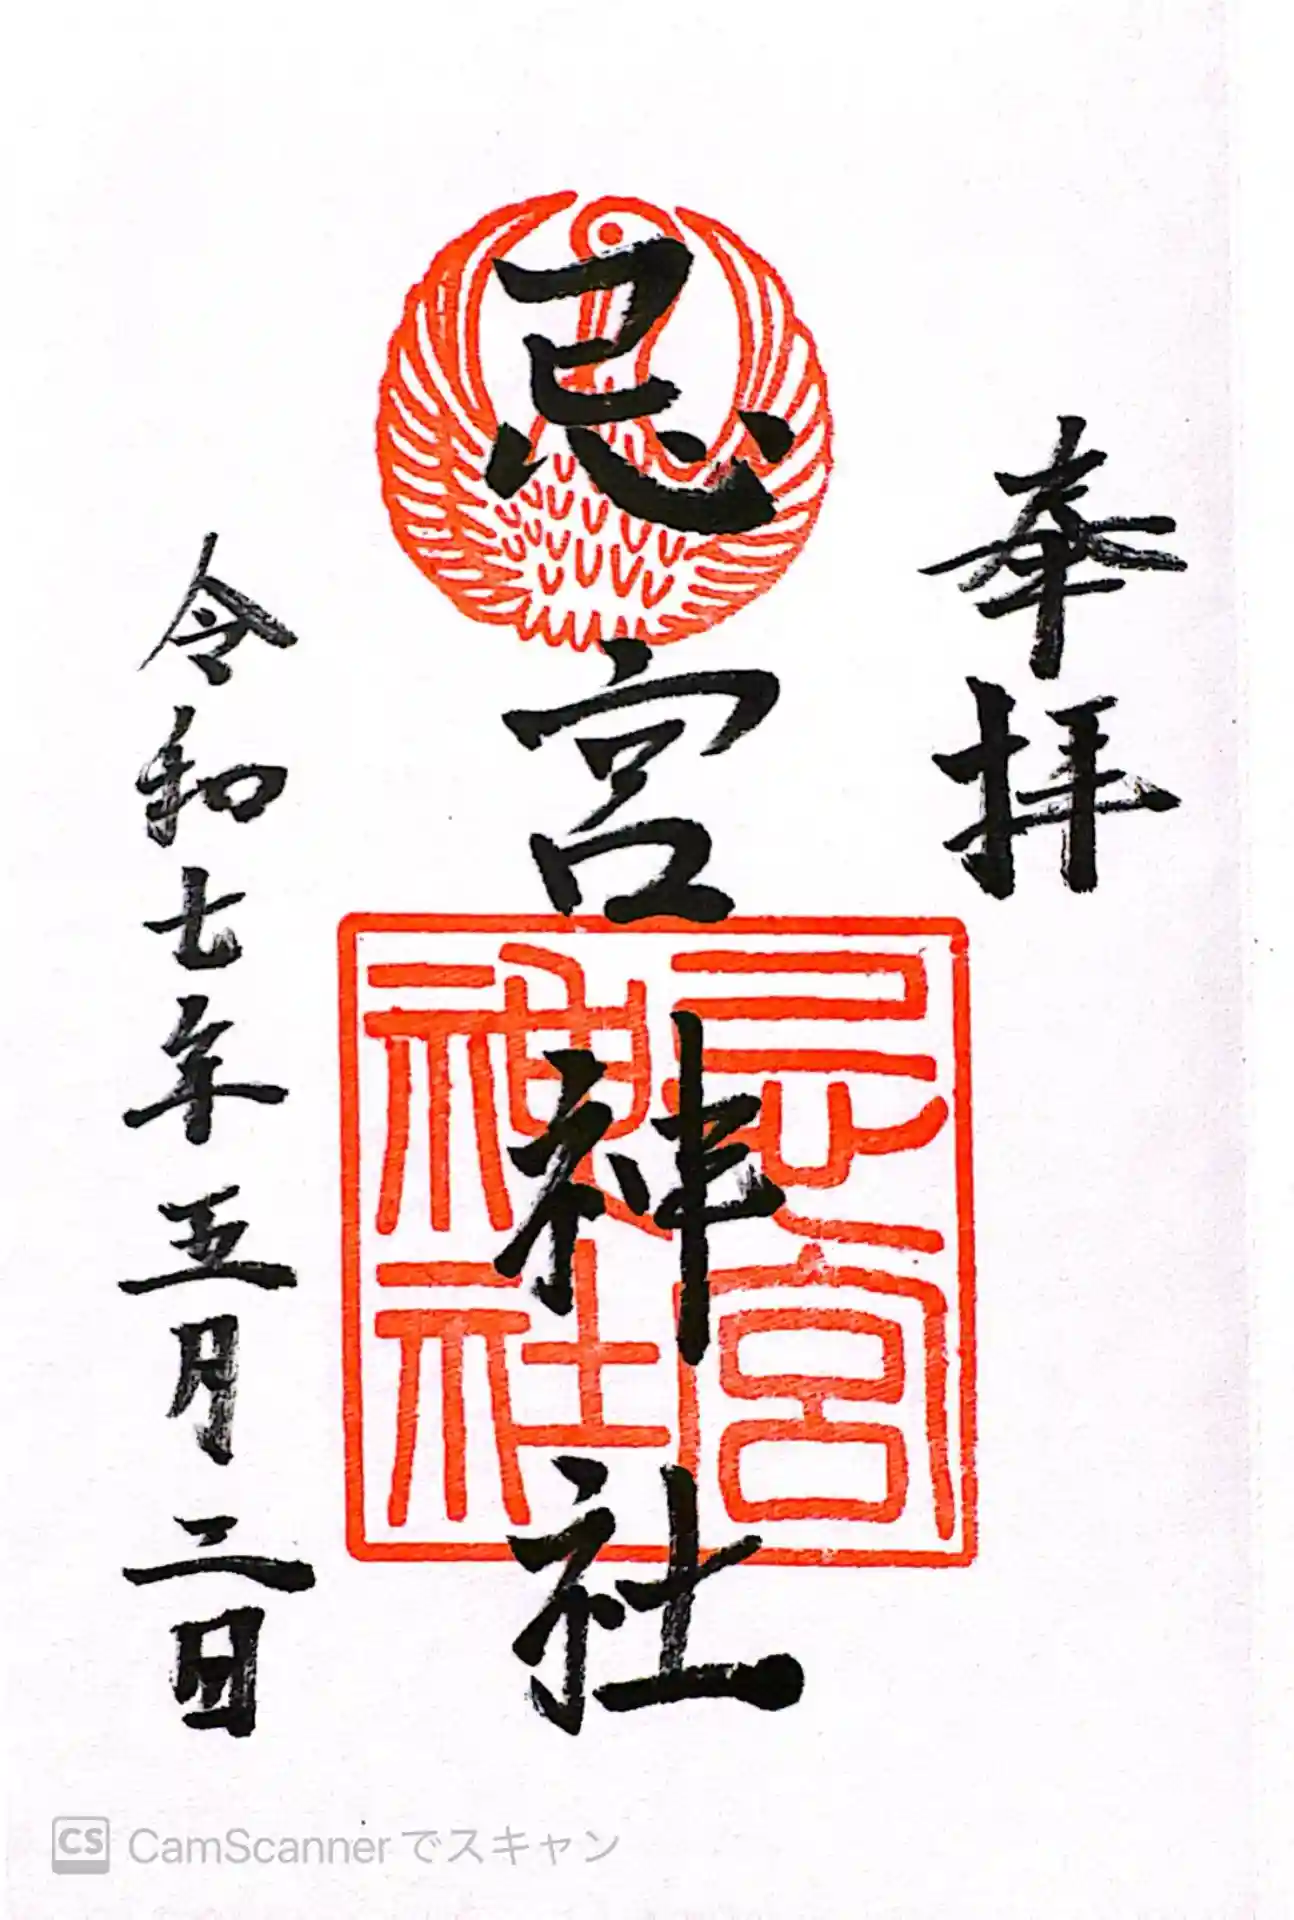 奉拝
忌宮神社
忌宮
神社
令和七年五月二日
CS CamScannerでスキャン